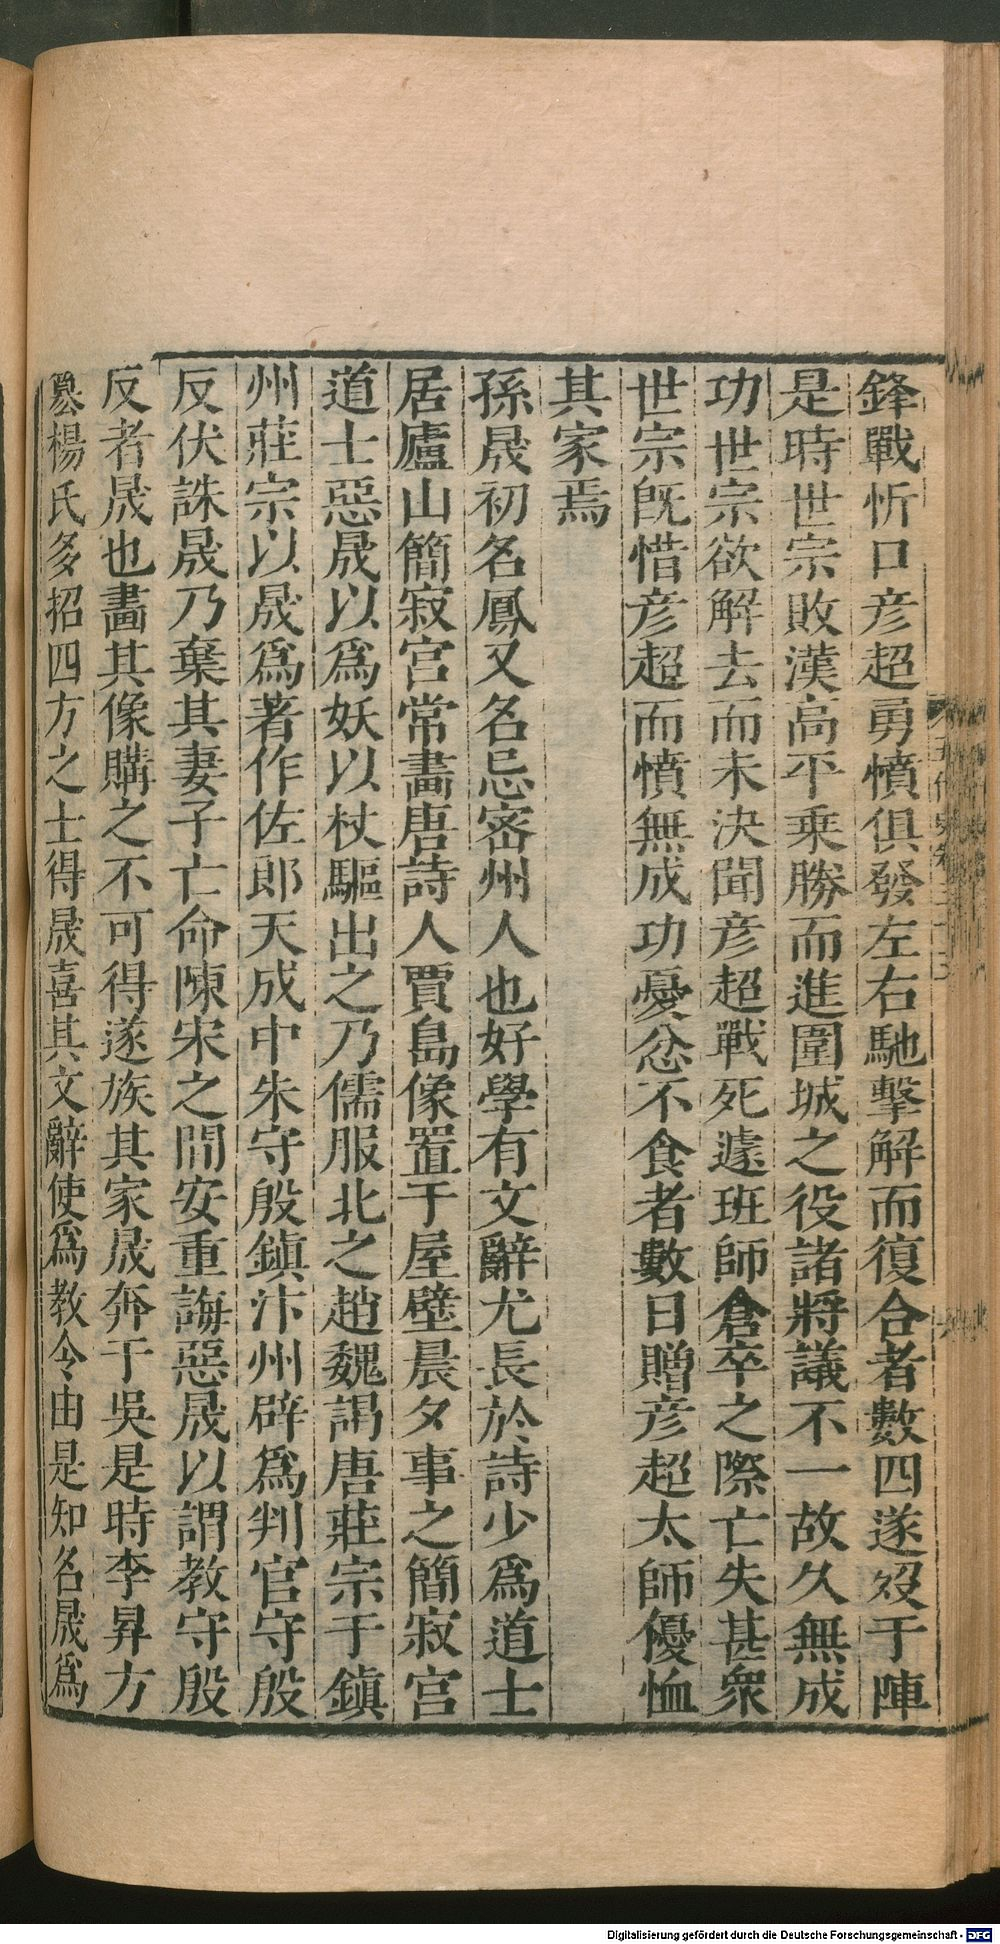 鋒戰忻口彥超勇憤俱發左右馳擊解而復合者數四遂歿于陣
是時世宗敗漢高平乗勝而進圍城之役諸將議不一故久無成
功世宗欲解去而未決聞彥超戰死遽班師倉卒之際亡失甚衆
世宗旣惜彥超而憤無成功憂忿不食者數日贈彥超太師優恤
其家焉
孫晟初名鳳又名忌密州人也好學有文辭尤長於詩少爲道士
居廬山簡寂宮常畫唐詩人賈島像置于屋壁晨夕事之簡寂宮
道士惡晟以爲妖以杖驅出之乃儒服北之趙魏謁唐莊宗于鎮
州莊宗以晟爲著作佐郎天成中朱守殷鎮汴州辟爲判官守殷
反伏誅晟乃棄其妻子亡命陳宋之間安重誨惡晟以謂教守殷
反者晟也畫其像購之不可得遂族其家晟奔于吳是時李昇方
篡楊氏多招四方之士得晟喜其文辭使爲教令由是知名晟爲
Digitalisierung gefördert durch die Deutsche Forschungsgemeinschaft - DFG